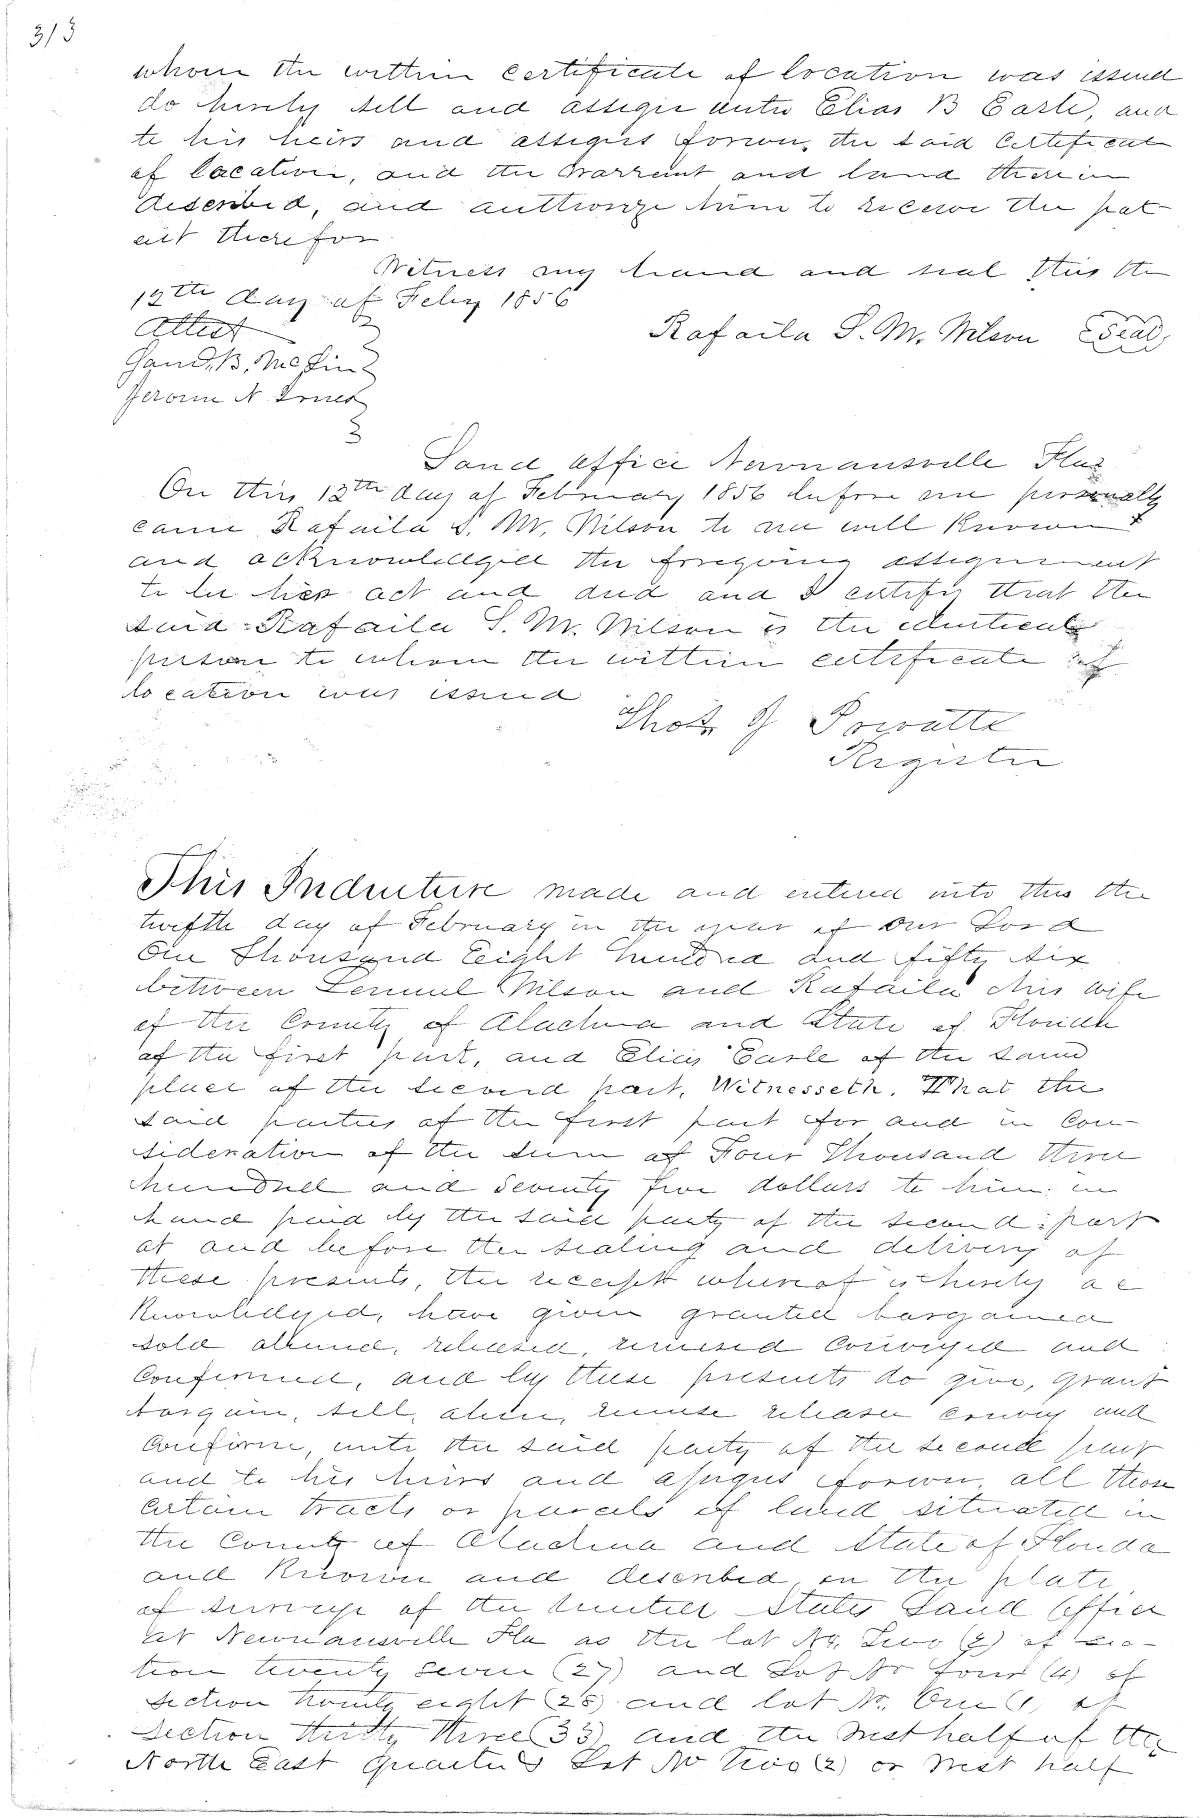 313
whom the within certificate of location was issued
do hereby sell and assign unto Elias B Earle, and
to his heirs and assigns forever, the said Certificate
of location, and the Warrant and land therein
described, and authorize him to receive the pat
ent therefor
Witness my hand and seal this the
12th day of Feby 1856
Attest
Rafaila S. M. Wilson Seal
B. McLin
Jerome N
Land office Newnansville Fla
On this 12th day of February 1856 before me personally
came Rafaila S. M. Wilson to me well known
and acknowledged the foregoing assignment
to be her act and deed and I certify that the
said Rafaila S. M. Wilson is the identical
person to whom the within certificate of
location was issued
J
Register
This Indenture made and entered into this the
twefth day of February in the year of Our Lord
One Thousand Eight hundred and fifty six
between Lemuel Wilson and Rafaila his wife
of the County of Alachua and State of Florida
of the first part, and Elias Earle of the same
place of the second part, Witnesseth. That the
said parties of the first part for and in Con-
sideration of the sum of Four Thousand three
hundred and Seventy five dollars to him in
hand paid by the said party of the second part
at and before the sealing and delivery of
these presents, the receipt whereof is hereby ac
knowledged, have given granted bargained
sold aliened, released, remised Conveyed and
Confirmed, and by these presents do give, grant
bargain, sell, alien, remise release convey and
Confirm, unto the said party of the second part
and to his heirs and assigns forever, all those
certain tracts or parcels of land situated in
the County of Alachua and State of Florida
and known and described on the plats
of surveys of the United States Land Office
at Newnansville Fla as the lot No. Two (2) of sec-
tion twenty seven (27) and Lot No four (4) of
section twenty eight (28) and lot No. One (1) of
Section thirty three (33) and the West half of the
North East quarter & Lot No two (2) or West half